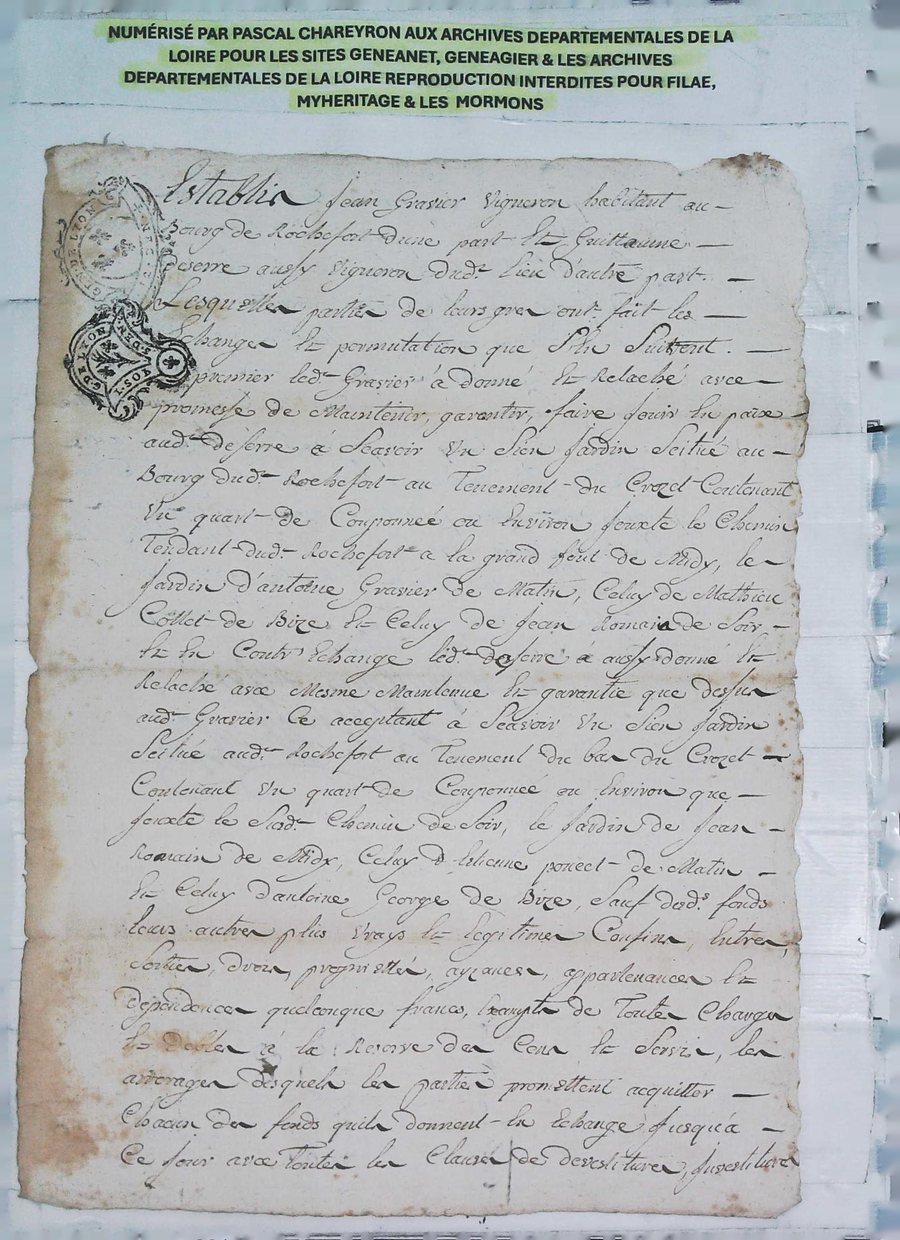 NUMÉRISÉ PAR PASCAL CHAREYRON AUX ARCHIVES DEPARTEMENTALES DE LA
LOIRE POUR LES SITES GENEANET, GENEAGIER & LES ARCHIVES
DEPARTEMENTALES DE LA LOIRE REPRODUCTION INTERDITES POUR FILAE,
MYHERITAGE & LES MORMONS
Establis Jean Grasier Vigneron habitant au
Bourg de Rochefort d'une part Et Guillaume
deserre aussy Vigneron dud. Lieu d'autre part.
Lesquelles parties de leurs grea ont fait les
Echanges Et permutation que S'en Suivent.
premier led. Grasier a donné Et Relaché avec
promesse de Maintenir, garantir, faire jouir En paix
aud. deserre a Scavoir Un Sien Jardin Scitué au
Bourg dud. Rochefort au Tenement du Crozet Contenant
Un quart de Couponnée ou Environ Jouxte le Chemin
Tendant dud. Rochefort a la grand font de Midy, le
Jardin d'antoine Grasier de Matin, Celuy de Mathieu
Collet de Bize Et Celuy de Jean Romain de Soir
Et En Contr'Echange led. deserre a aussy donné Et
Relaché avec Mesme Maintenue Et garantie que dessus
aud. Grasier Ce acceptant à Scavoir Un Sien Jardin
Scitué aud. Rochefort au Tenement du bas du Crozet
Contenant Un quart de Couponnée ou Environ que
Jouxte le Susd. Chemin de Soir, le Jardin de Jean
Romain de Midy, Celuy d'Etienne poncet de Matin
Et Celuy d'antoine George de Bize, Sauf desd. fonds
leurs autres plus Vrays Et legitimes Confins, Entrées
Sorties, droits, proprietés, ayzances, appartenances Et
dépendances quelconque francs, Exempts de Toutes Charges
Et debtes à la Reserve des Cens Et Servis, les
arrerages desquels les parties promettent acquitter
Chacun des fonds quils donnent En Echange Jusqu'a
Ce Jour avec Toutes les Clauses de devestitures, Investitures